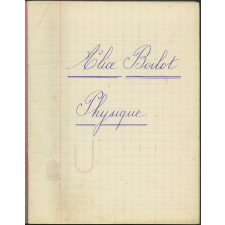 Alice Boilot
Physique.